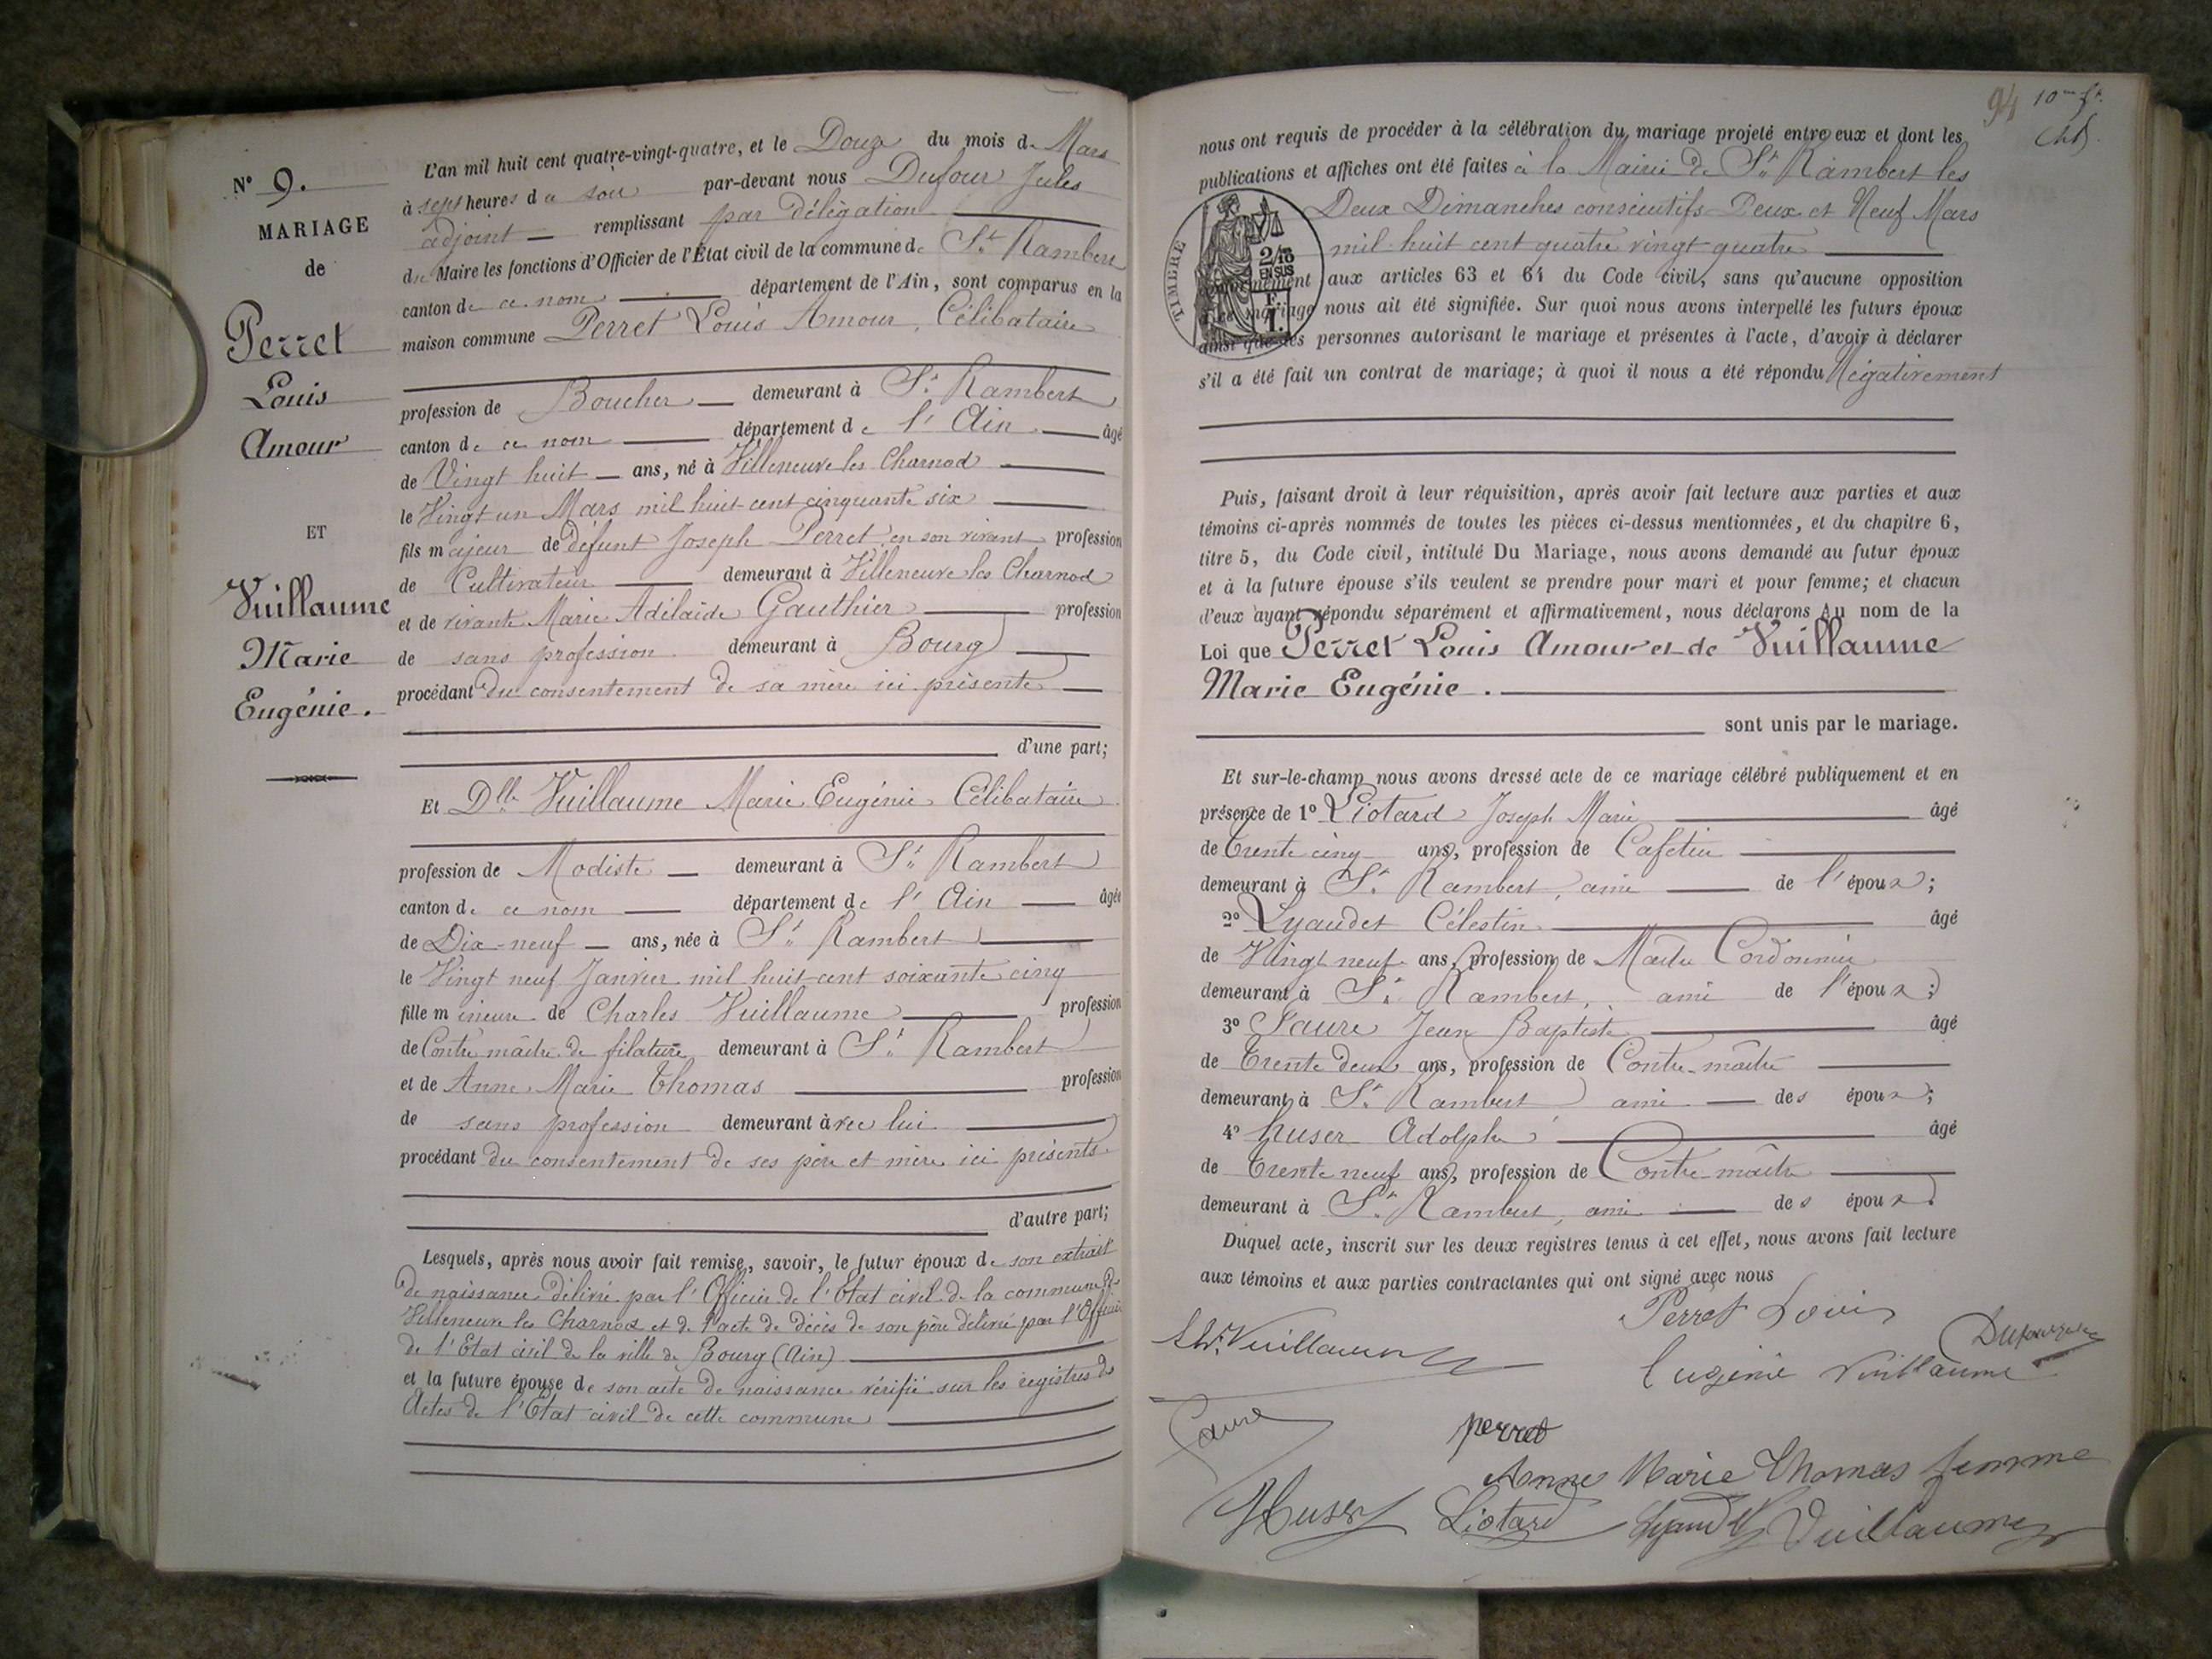 N° 9.
MARIAGE
de
Perret
Louis
Amour
ET
Vuillaume
Marie
Eugénie.
L'an mil huit cent quatre-vingt-quatre, et le Douze du mois de Mars
à sept heures du soir par-devant nous Dufour Jules
adjoint remplissant par délégation
du Maire les fonctions d'Officier de l'État civil de la commune de St Rambert
canton de ce nom département de l'Ain, sont comparus en la
maison commune Perret Louis Amour, Célibataire
profession de Boucher demeurant à St Rambert
canton de ce nom département de l'Ain âgé
de Vingt huit ans, né à Villeneuve les Charnod
le Vingt un Mars mil huit cent cinquante six
fils majeur de défunt Joseph Perret en son vivant profession
de Cultivateur demeurant à Villeneuve les Charnod
et de vivante Marie Adélaïde Gauthier profession
de sans profession demeurant à Bourg
procédant du consentement de sa mère ici présente
d'une part;
Et Dlle Vuillaume Marie Eugénie Célibataire
profession de Modiste demeurant à St Rambert
canton de ce nom département de l'Ain âgée
de Dix-neuf ans, née à St Rambert
le Vingt neuf Janvier mil huit cent soixante cinq
fille mineure de Charles Vuillaume profession
de Contre maître de filature demeurant à St Rambert
et de Anne Marie Thomas profession
de sans profession demeurant àvec lui
procédant du consentement de ses père et mère ici présents
d'autre part;
Lesquels, après nous avoir fait remise, savoir, le futur époux de son extrait
de naissance délivré par l'Officier de l'Etat civil de la commune de
Villeneuve les Charnod et de l'acte de décès de son père délivré par l'Officier
de l'Etat civil de la ville de Bourg (Ain)
et la future épouse de son acte de naissance vérifié sur les registres des
Actes de l'Etat civil de cette commune
94
nous ont requis de procéder à la célébration du mariage projeté entre eux et dont les
publications et affiches ont été faites à la Mairie de St Rambert les
Deux Dimanches consécutifs Deux et Neuf Mars
mil huit cent quatre vingt quatre
TIMBRE
2/10
EN SUS
conformément aux articles 63 et 64 du Code civil, sans qu'aucune opposition
à ce mariage nous ait été signifiée. Sur quoi nous avons interpellé les futurs époux
ainsi que les personnes autorisant le mariage et présentes à l'acte, d'avoir à déclarer
s'il a été fait un contrat de mariage; à quoi il nous a été répondu Négativement
Puis, faisant droit à leur réquisition, après avoir fait lecture aux parties et aux
témoins ci-après nommés de toutes les pièces ci-dessus mentionnées, et du chapitre 6,
titre 5, du Code civil, intitulé Du Mariage, nous avons demandé au futur époux
et à la future épouse s'ils veulent se prendre pour mari et pour femme; et chacun
d'eux ayant répondu séparément et affirmativement, nous déclarons Au nom de la
Loi que Perret Louis Amour et de Vuillaume
Marie Eugénie.
sont unis par le mariage.
Et sur-le-champ nous avons dressé acte de ce mariage célébré publiquement et en
présence de 1° Liotard Joseph Marie âgé
de Trente cinq ans, profession de Cafetier
demeurant à St Rambert, ami de l'époux;
2° Lyaudet Célestin âgé
de Vingt neuf ans, profession de Maître Cordonnier
demeurant à St Rambert, ami de l'époux;
3° Faure Jean Baptiste âgé
de Trente deux ans, profession de Contre-maître
demeurant à St Rambert ami des époux;
4° Huser Adolphe âgé
de Trente neuf ans, profession de Contre-maître
demeurant à St Rambert, ami des époux.
Duquel acte, inscrit sur les deux registres tenus à cet effet, nous avons fait lecture
aux témoins et aux parties contractantes qui ont signé avec nous
Perret Louis
Chs. Vuillaume
Dufour
Eugénie Vuillaume
Faure
perret
Anne Marie Thomas femme
Huser Liotard Lyaudet Vuillaume